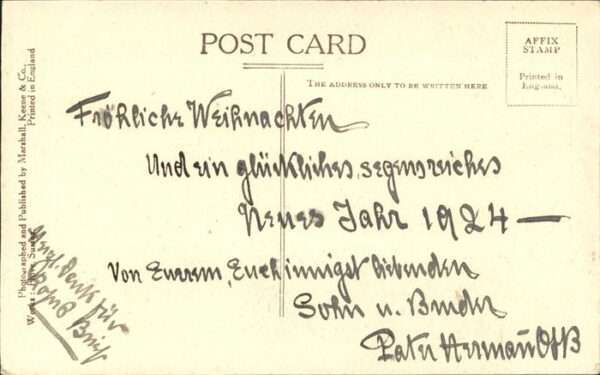 POST CARD
THE ADDRESS ONLY TO BE WRITTEN HERE
AFFIX
STAMP
Printed in
England.
Photographed and Published by Marshall, Keene & Co.,
Printed in England
Fröhliche Weihnachten
Und ein glückliches, segensreiches
Neues Jahr 1924 —
Von Eurem, Euch innigst liebenden
Sohn u. Bruder
Pater Hermann OSB
Dank für
Brief